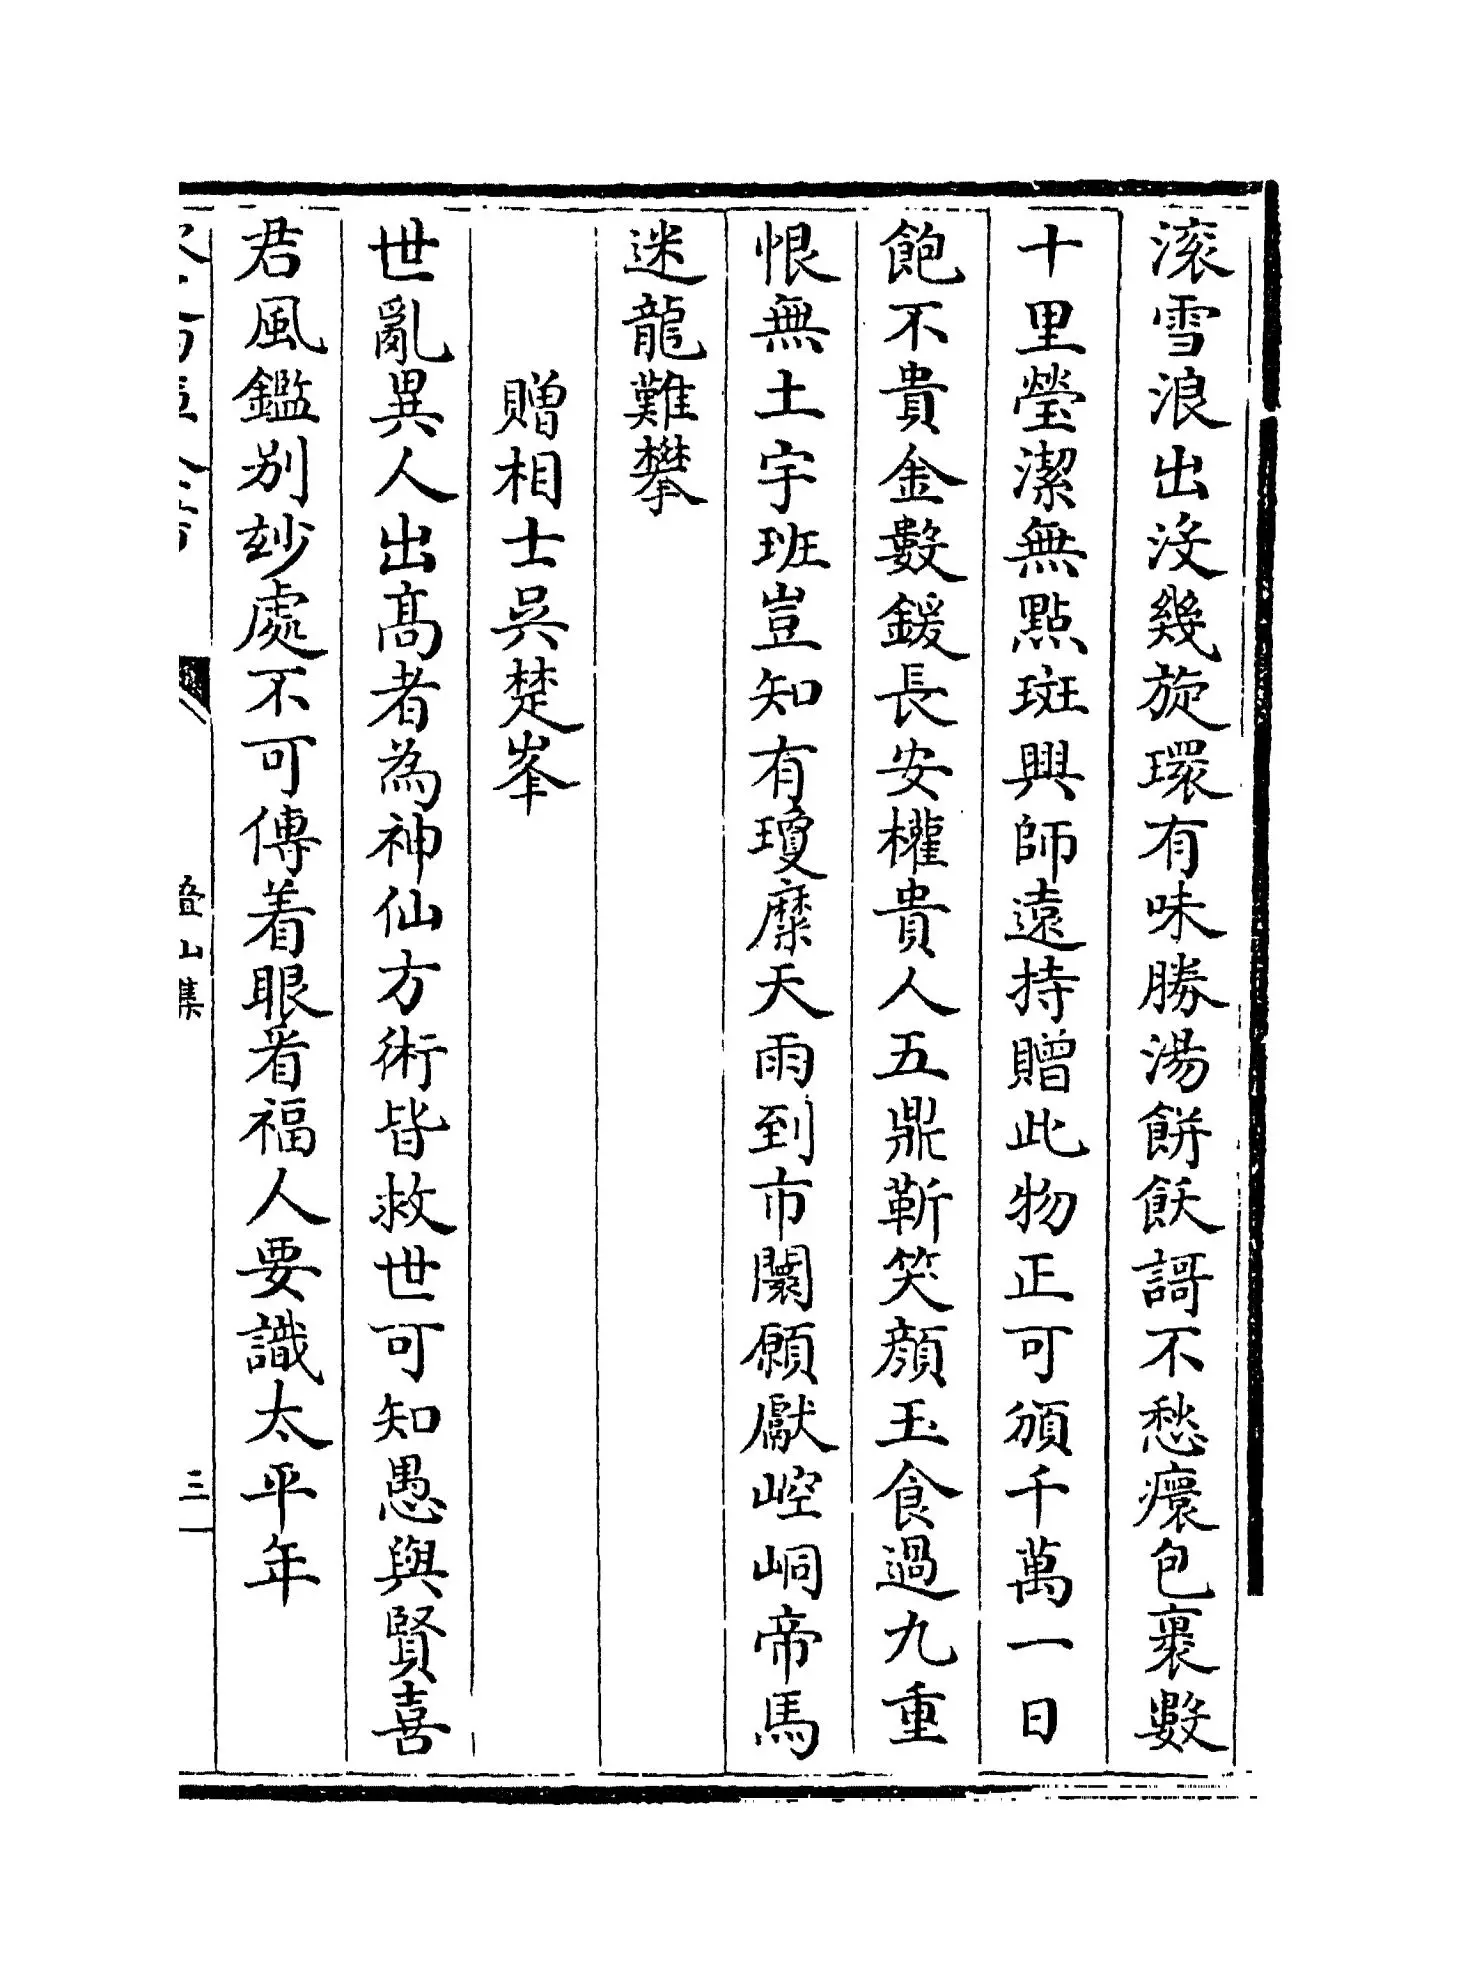 滚雪浪出沒幾旋環有味勝湯餅飫謌不愁癏包裹數
十里瑩潔無點斑興師遠持贈此物正可頒千萬一日
飽不貴金數鍰長安權貴人五鼎靳笑顔玉食過九重
恨無土宇班豈知有瓊糜天雨到市闤願獻崆峒帝馬
迷龍難攀
贈相士吳楚峯
世亂異人出髙者為神仙方術皆救世可知愚與賢喜
君風鑑别妙處不可傳着眼看福人要識太平年
疊山集
三